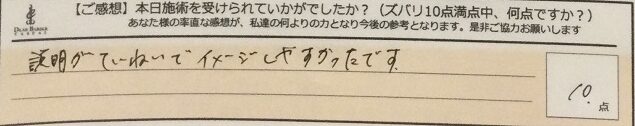 【ご感想】本日施術を受けられていかがでしたか？（ズバリ10点満点中、何点ですか？）
あなた様の率直な感想が、私達の何よりの力となり今後の参考となります。是非ご協力お願いします
説明がていねいでイメージしやすかったです
10.
点